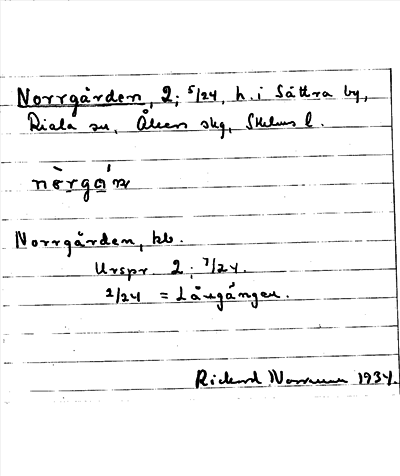 Norrgården, 2; 5/24, h. i Sättra by,
Riala sn, Åkers skg, Sthlms l.
nòrgá̱ɳ
Norrgården, kb.
Urspr. 2; 7/24.
2/24 = Långängen.
Rickard 1934.